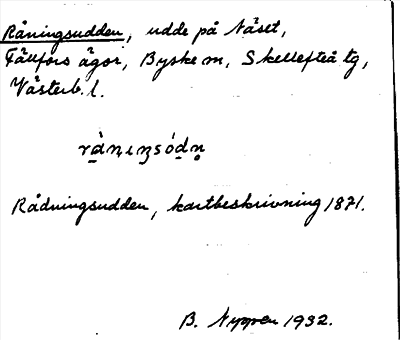 Råningsudden, udde på Näset,
Fällfors ägor, Byske sn, Skellefteå tg,
Västerb. l.
rå̀nıŋsódn̥
Rådningsudden, kartbeskrivning 1871.
B. Nygren 1932.